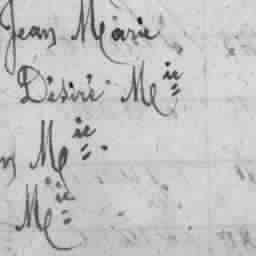 Jean Marie
Désiré Mie
n Mie
Mie